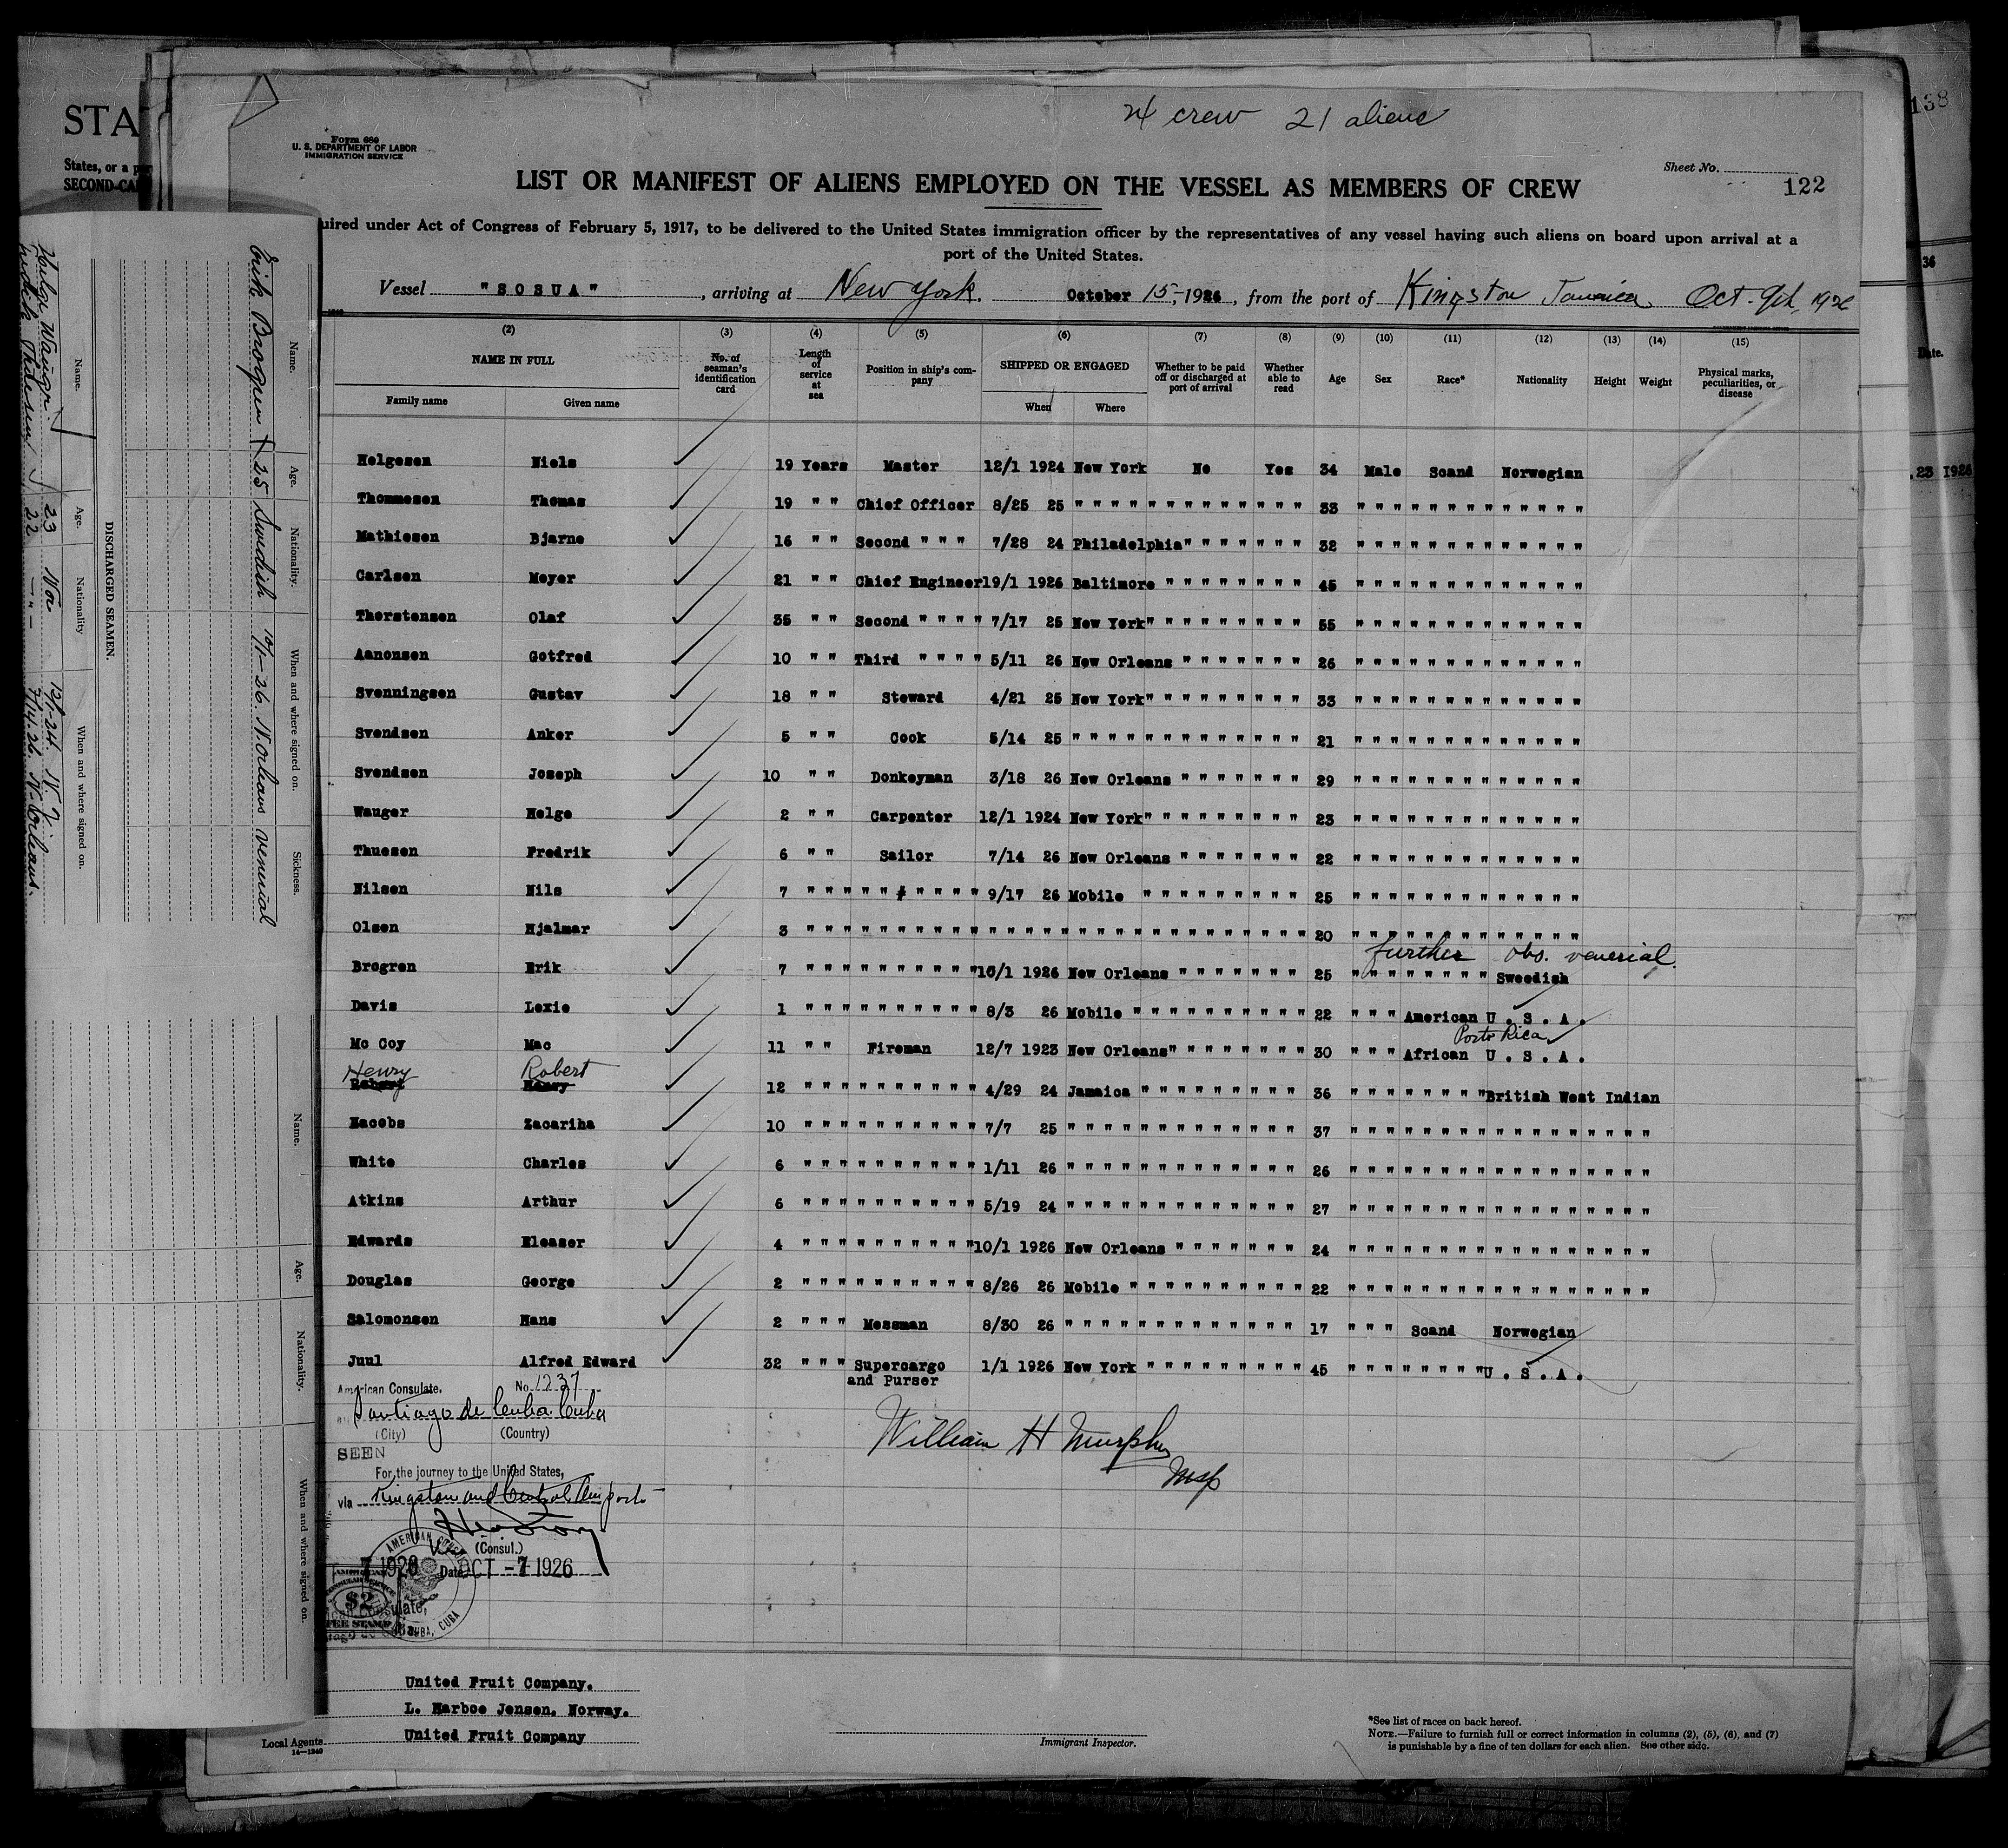 24 crew 21 aliens
Form 680
U. S. DEPARTMENT OF LABOR
IMMIGRATION SERVICE
Sheet No.
122
LIST OR MANIFEST OF ALIENS EMPLOYED ON THE VESSEL AS MEMBERS OF CREW
uired under Act of Congress of February 5, 1917, to be delivered to the United States immigration officer by the representatives of any vessel having such aliens on board upon arrival at a
port of the United States.
Vessel "SOSUA", arriving at New York. October 15, 1926, from the port of Kingston Jamaica Oct. 9th, 1926
(2) (3) (4) (5) (6) (7) (8) (9) (10) (11) (12) (13) (14) (15)
NAME IN FULL No. of seaman's identification card Length of service at sea Position in ship's company SHIPPED OR ENGAGED Whether to be paid off or discharged at port of arrival Whether able to read Age Sex Race* Nationality Height Weight Physical marks, peculiarities, or disease
Family name Given name When Where
Helgesen Niels 19 Years Master 12/1 1924 New York No Yes 34 Male Scand Norwegian
Thommesen Thomas 19 " " Chief Officer 8/25 25 " " " " " " " " " " " " 33 " " " " " " " " " " " "
Mathiesen Bjarne 16 " " Second " " " 7/28 24 Philadelphia " " " " " " " 32 " " " " " " " " " " " "
Carlsen Meyer 21 " " Chief Engineer 19/1 1926 Baltimore " " " " " " " 45 " " " " " " " " " " " "
Thorstensen Olaf 35 " " Second " " " " 7/17 25 New York " " " " " " " " 55 " " " " " " " " " " " "
Aanonsen Gotfred 10 " " Third " " " " 5/11 26 New Orleans " " " " " " " 26 " " " " " " " " " " " "
Svenningsen Gustav 18 " " Steward 4/21 25 New York " " " " " " " " 33 " " " " " " " " " " " "
Svendsen Anker 5 " " Cook 5/14 25 " " " " " " " " " " " " 21 " " " " " " " " " " " "
Svendsen Joseph 10 " " Donkeyman 3/18 26 New Orleans " " " " " " " 29 " " " " " " " " " " " "
Wauger Helge 2 " " Carpenter 12/1 1924 New York " " " " " " " " 23 " " " " " " " " " " " "
Thuesen Fredrik 6 " " Sailor 7/14 26 New Orleans " " " " " " " 22 " " " " " " " " " " " "
Nilsen Nils 7 " " " " " " " " " 9/17 26 Mobile " " " " " " " " 25 " " " " " " " " " " " "
Olsen Hjalmar 3 " " " " " " " " " " " " " " " " " " " " " " " 20 " " " " " " " " " " " "
further obs. venerial.
Brogren Erik 7 " " " " " " " " " 10/1 1926 New Orleans " " " " " " " 25 " " " " " " " Swedish
Davis Lexie 1 " " " " " " " " " 8/3 26 Mobile " " " " " " " " " 22 " " " American U.S.A.
Porto Rica
Mc Coy Mac 11 " " Fireman 12/7 1923 New Orleans " " " " " " " " 30 " " " African U.S.A.
Henry Robert
Robert Henry 12 " " " " " " " " " 4/29 24 Jamaica " " " " " " " " " 36 " " " " " " " British West Indian
Hacobs Zacariha 10 " " " " " " " " " 7/7 25 " " " " " " " " " " " " 37 " " " " " " " " " " " " " " "
White Charles 6 " " " " " " " " " 1/11 26 " " " " " " " " " " " " 26 " " " " " " " " " " " " " " "
Atkins Arthur 6 " " " " " " " " " 5/19 24 " " " " " " " " " " " " 27 " " " " " " " " " " " " " " "
Edwards Eleaser 4 " " " " " " " " " 10/1 1926 New Orleans " " " " " " " 24 " " " " " " " " " " " " " " "
Douglas George 2 " " " " " " " " " 8/26 26 Mobile " " " " " " " " " 22 " " " " " " " " " " " " " " "
Salomonsen Hans 2 " " " Messman 8/30 26 " " " " " " " " " " " " 17 " " " Scand Norwegian
Juul Alfred Edward 32 " " " Supercargo and Purser 1/1 1926 New York " " " " " " " " 45 " " " " " " " U.S.A.
American Consulate. No. 1237
Santiago de Cuba Cuba
(City) (Country)
SEEN
For the journey to the United States,
via Kingston and
(Consul.)
Date OCT -7 1926
7 1926
AMERICAN
CUBA, CUBA
$2
FEE STAMP
William H Murphy
msp
United Fruit Company.
L. Harboe Jensen. Norway.
United Fruit Company
Local Agents
14—1240
Immigrant Inspector.
*See list of races on back hereof.
NOTE.—Failure to furnish full or correct information in columns (2), (5), (6), and (7)
is punishable by a fine of ten dollars for each alien. See other side.
STA
States, or a
SECOND-CA
DISCHARGED SEAMEN.
Name. Age. Nationality. When and where signed on. Sickness.
Erik Brogren 25 Swedish 10/1-26. N. Orleans venerial
Name. Age. Nationality When and where signed on.
Helge Wauger 23 Nor 12/1-24. N.Y.
Fredrik Thuesen 22 - " - 7/14.26. N-Orleans.
Name. Age. Nationality. When and where signed on.
138
36
Date.
23 1926